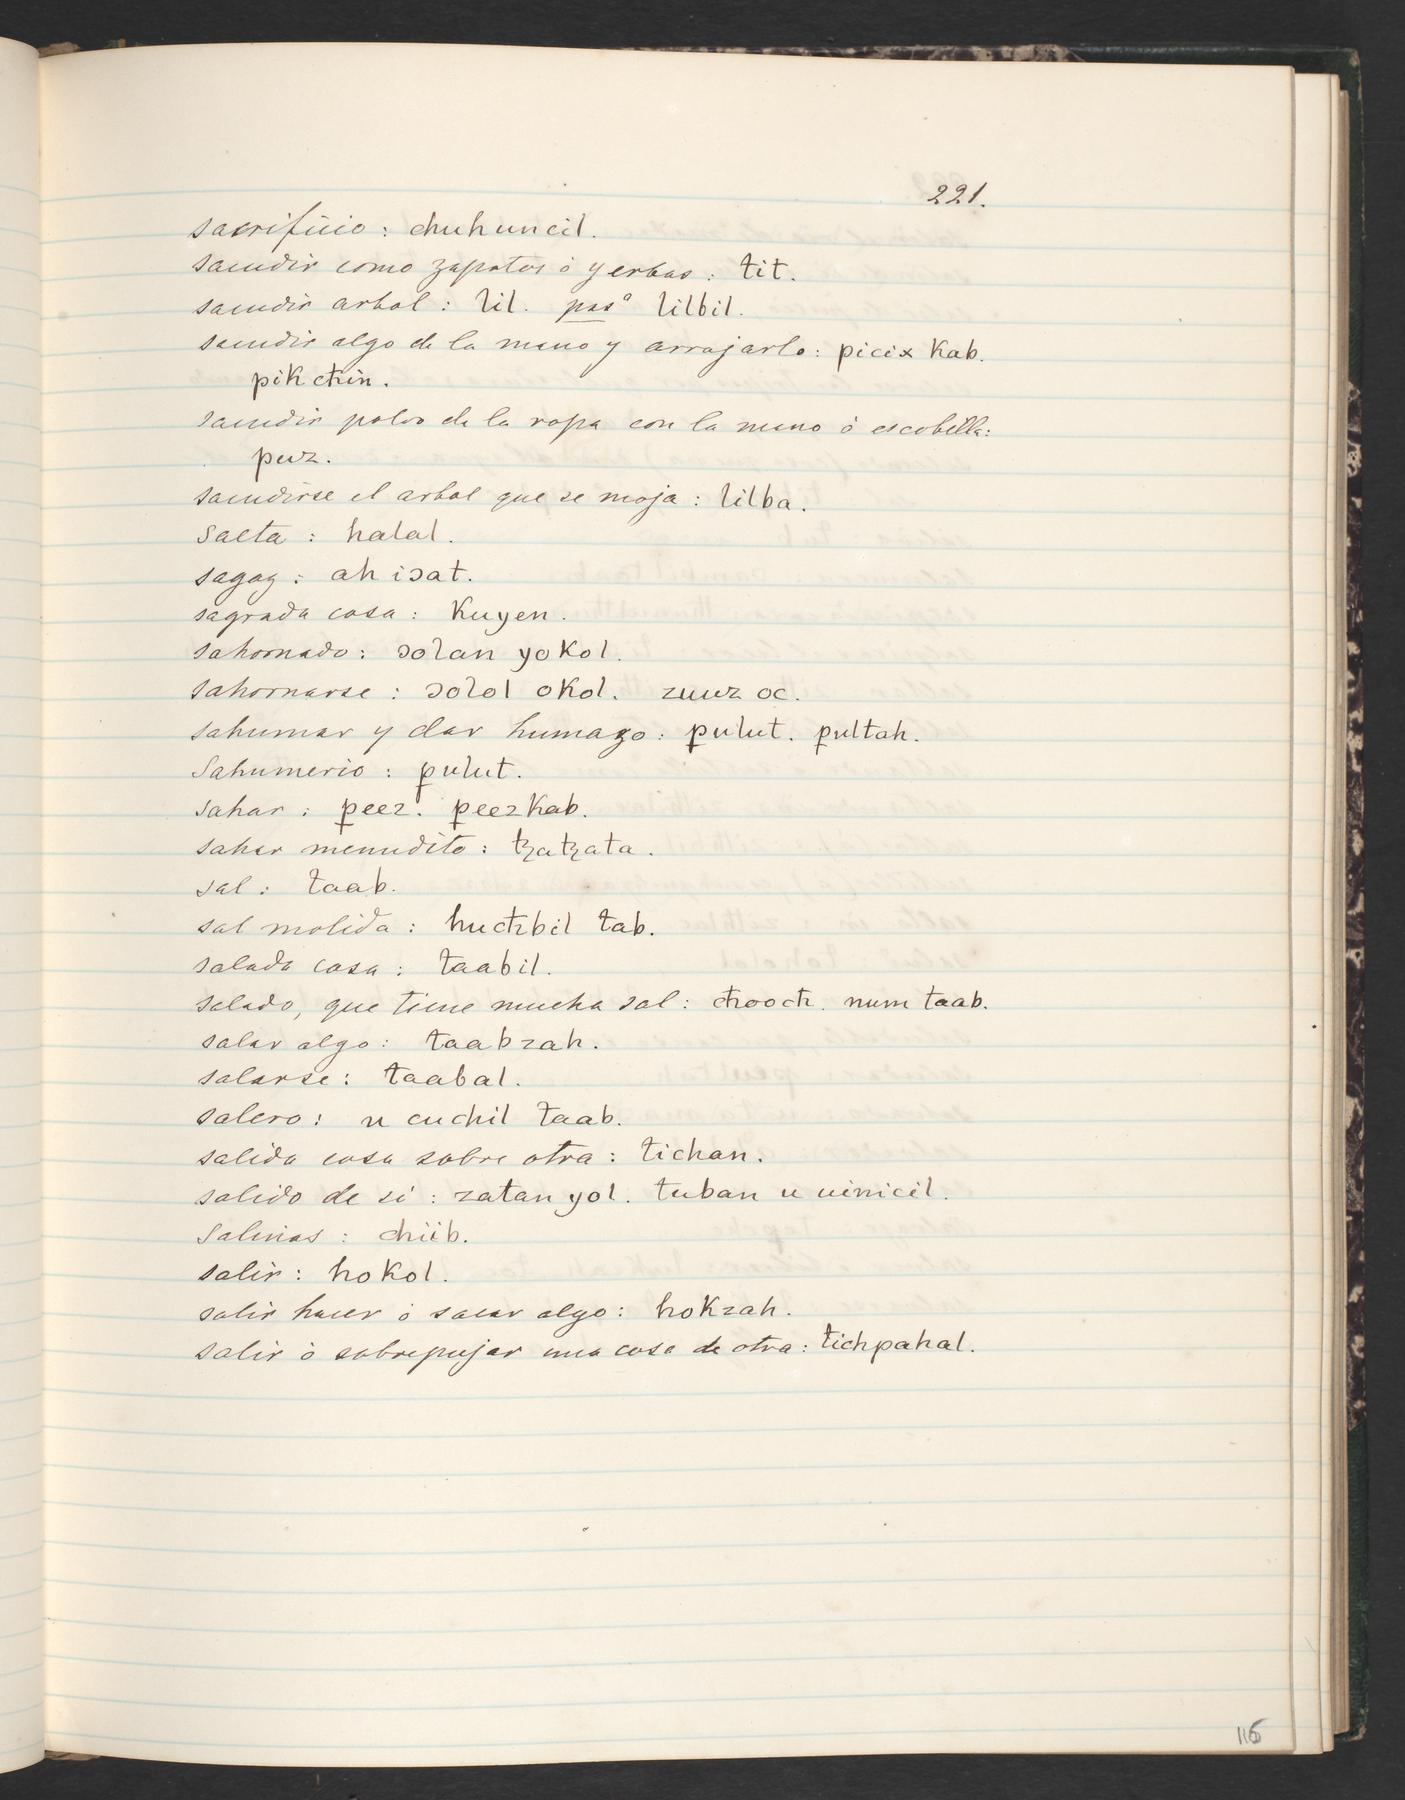 221.
sacrificio : chuhuncil.
sacudir como zapatos ó yerbas : tit.
sacudir arbol : lil. pasº lilbil.
sacudir algo de la mano y arrojarlo : picix kab.
pikcħin.
sacudir polvo de la ropa con la mano ó escobilla :
puz.
sacudirse el arbol que se moja : lilba.
saeta : halal.
sagaz : ah iɔat.
sagrada cosa : kuyen.
sahornado : ɔolan yokol.
sahornarse : ɔolol okol. zuuz oc.
sahumar y dar humazo : ꝑulut. ꝑultah.
Sahumerio : ꝑulut.
sahar : ꝑeez. ꝑeezkab.
sahar menudito : tzatzata.
sal : taab.
sal molida : hucħbil tab.
salada cosa : taabil.
salado, que tiene mucha sal : cħoocħ. num taab.
salar algo : taabzah.
salarse : taabal.
salero : u cuchil taab.
salida cosa sobre otra : tichan.
salido de si : zatan yol. tuban u uinicil.
Salinas : chiib.
salir : hokol.
salir hacer ó sacar algo : hokzah.
salir ó sobrepujar una cosa de otra : tichpahal.
116